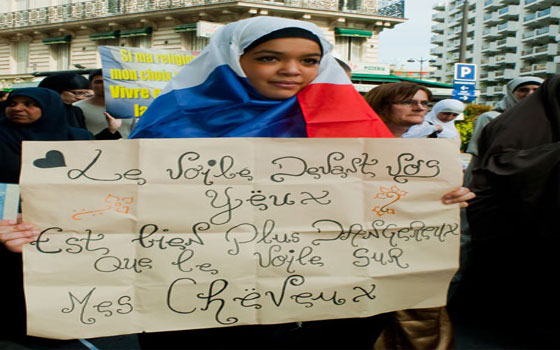 Si ma
mon choix
Vivre
P
Le Voile Devant Vos
Yëux
Est bien Plus DANGEREUX
Que le Voile Sur
Mes Chëveux